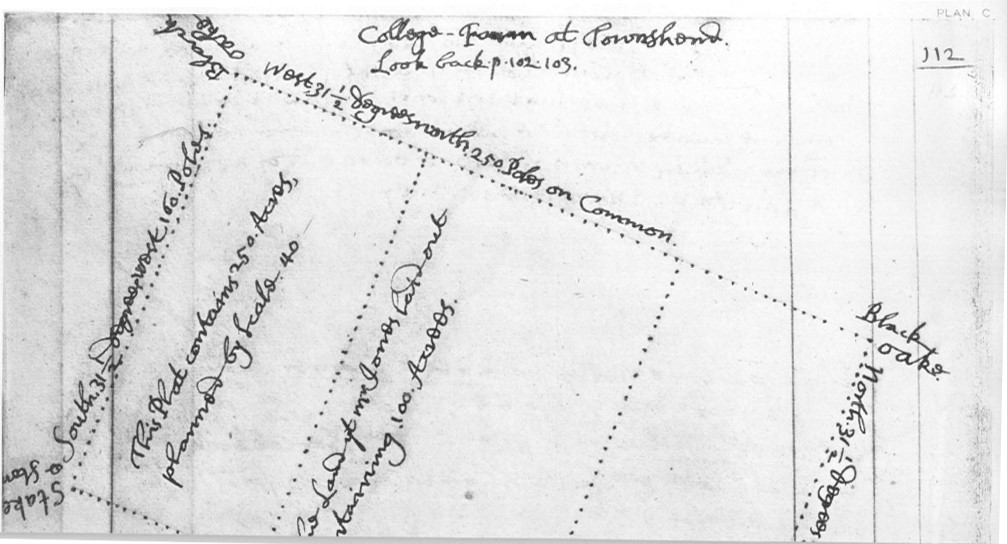 PLAN C
112
College-Farm at Townshend.
Look back p. 102. 103.
Black
oake
West. 31 1/2 degrees north. 250. Poles on Common
Black
oake.
North. 31 1/2 degrees
South. 31 1/2 degrees west. 160. Poles
Stake
This Plat contains 250. Acres,
planned by Scale 40
Land yt mr Jones Laid out
taining 100. Acres.